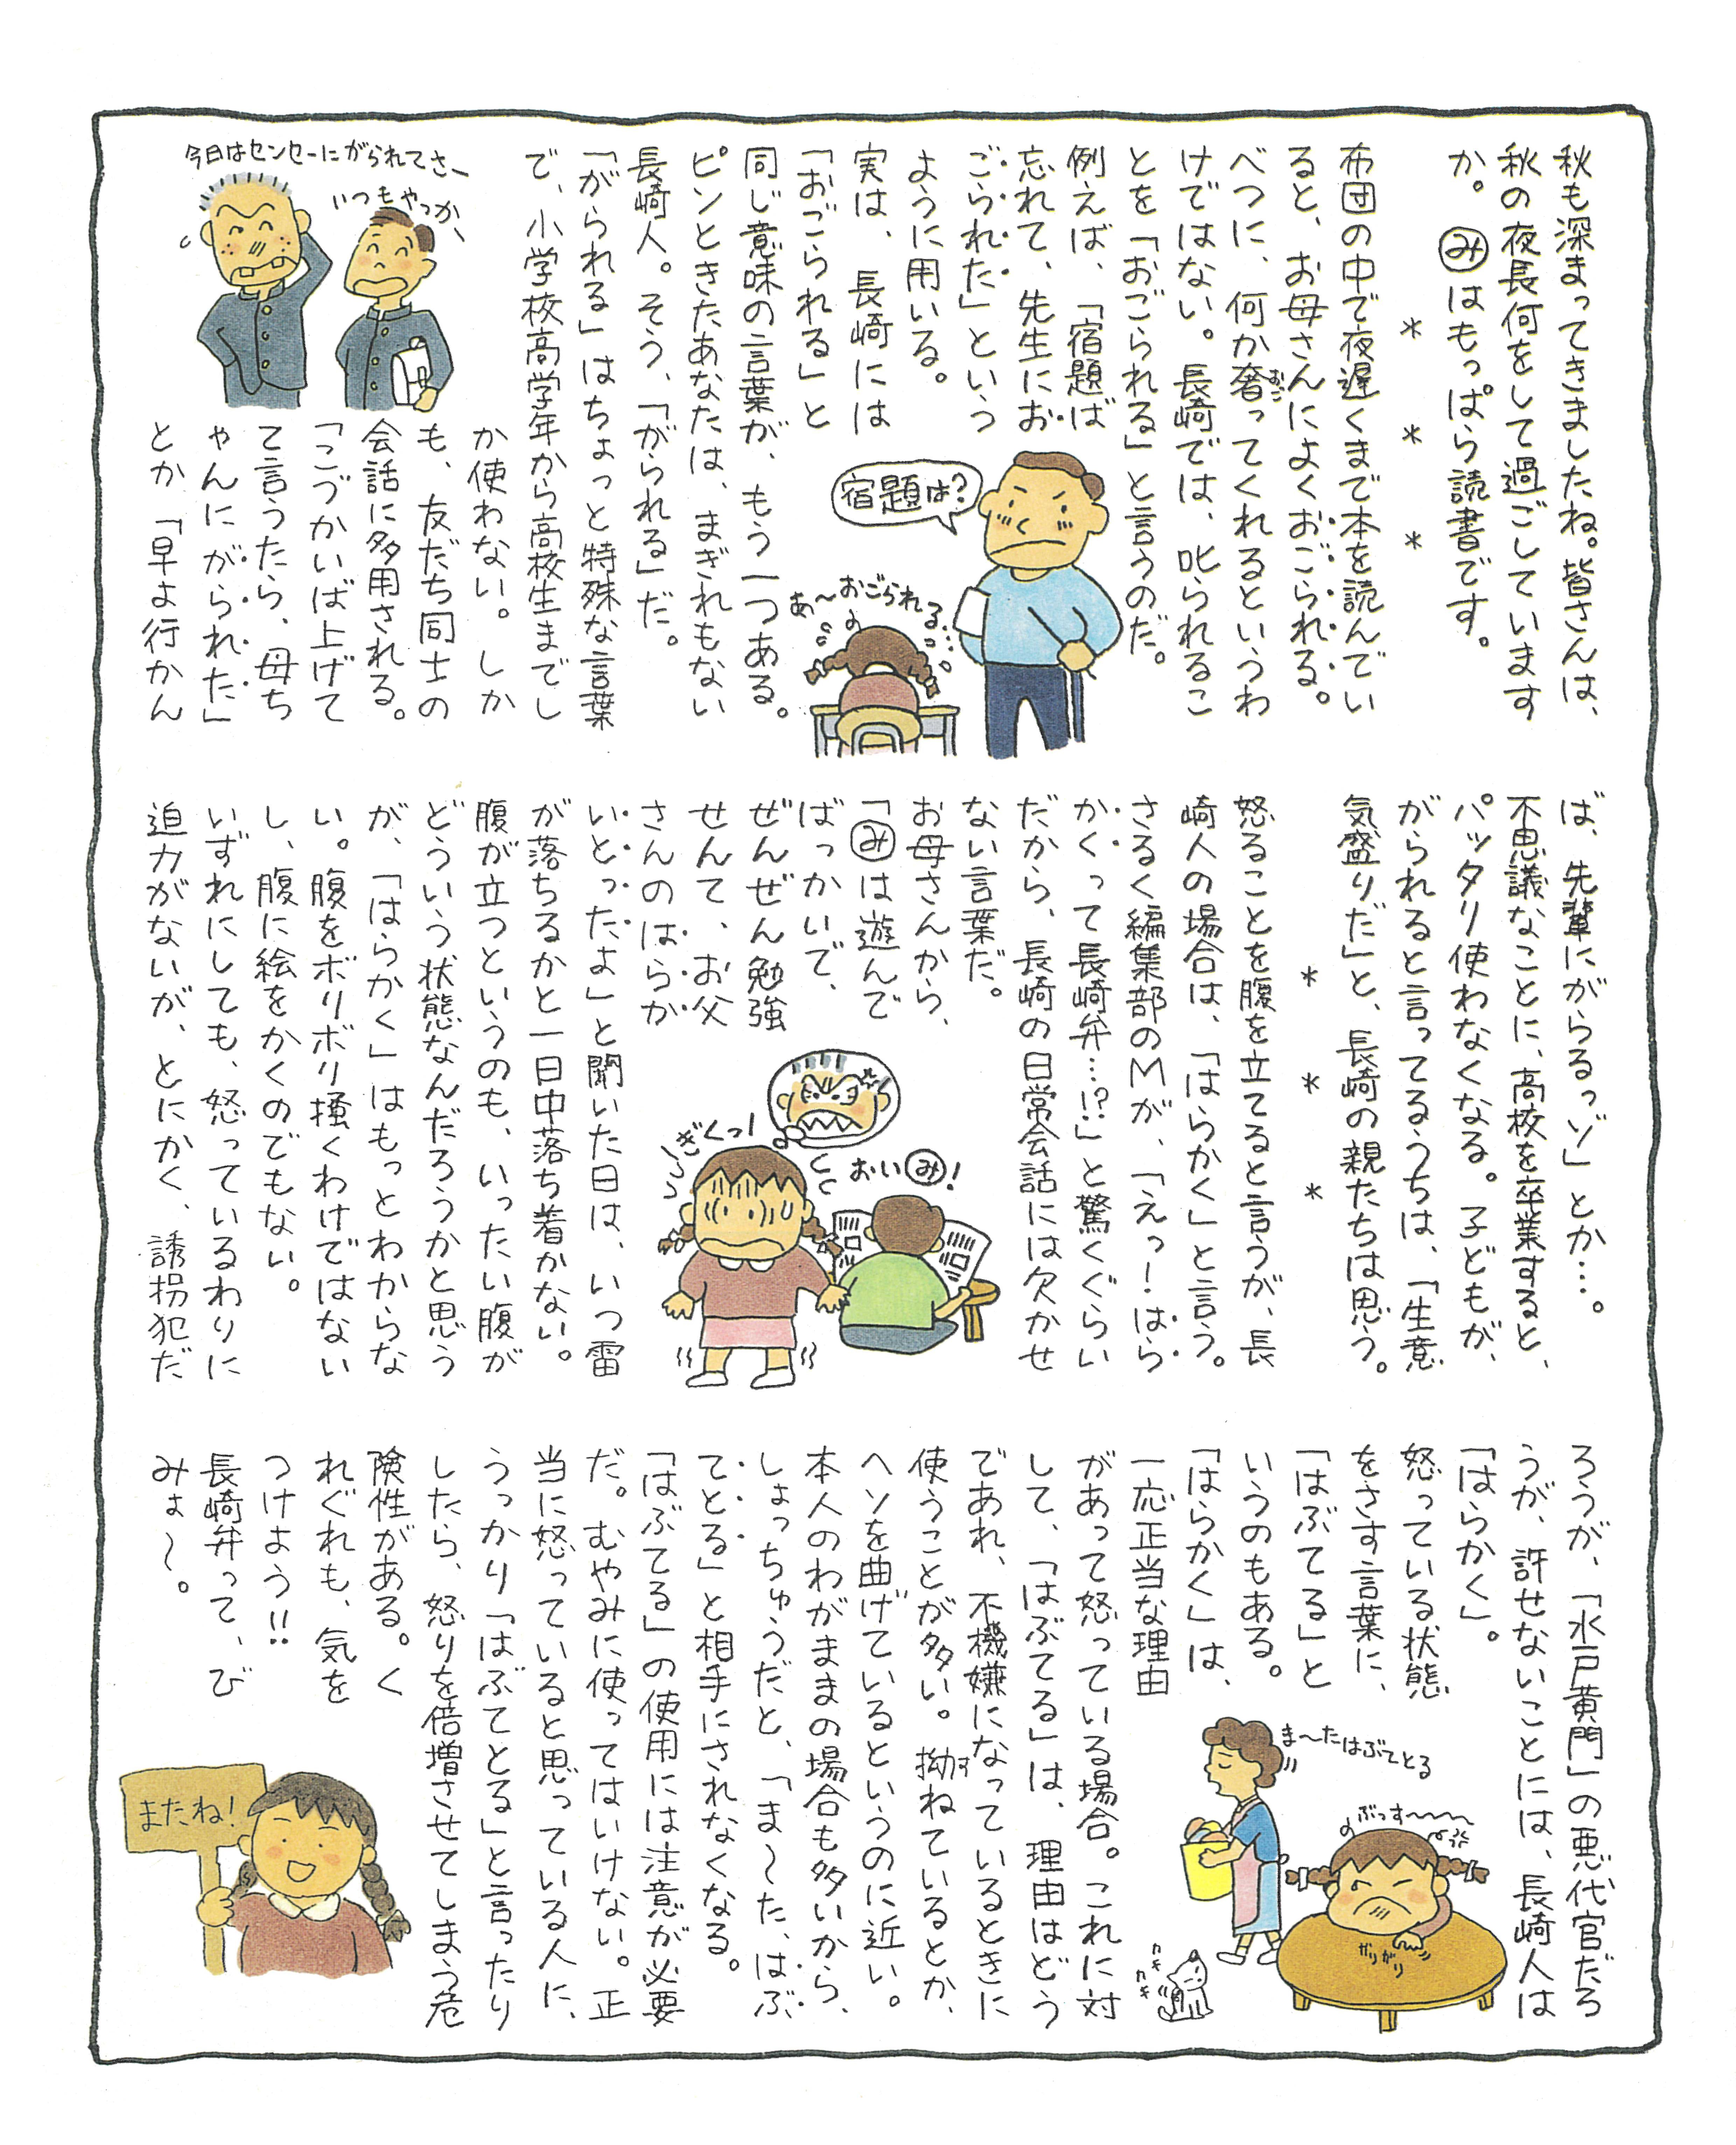 秋も深まってきましたね。皆さんは、
秋の夜長何をして過ごしています
か。㋯はもっぱら読書です。
＊　＊　＊
布団の中で夜遅くまで本を読んでい
ると、お母さんによくおごられる。
べつに、何か奢(おご)ってくれるというわ
けではない。長崎では、叱られるこ
とを「おごられる」と言うのだ。
例えば、「宿題ば
忘れて、先生にお
ごられた」という
ように用いる。
実は、長崎には
「おごられる」と
同じ意味の言葉が、もう一つある。
ピンときたあなたは、まぎれもない
長崎人。そう、「がられる」だ。
「がられる」はちょっと特殊な言葉
で、小学校高学年から高校生までし
か使わない。しか
も、友だち同士の
会話に多用される。
「こづかいば上げて
て言うたら、母ち
ゃんにがられた」
とか「早よ行かん
宿題は?
あ〜おごられる…
今日はセンセーにがられてさー
いつもやっか、
ば、先輩にがらるっゾ」とか…。
不思議なことに、高校を卒業すると、
パッタリ使わなくなる。子どもが、
がられると言ってるうちは、「生意
気盛りだ」と、長崎の親たちは思う。
＊　＊　＊
怒ることを腹を立てると言うが、長
崎人の場合は、「はらかく」と言う。
さるく編集部のMが、「えっ！はら
かくって長崎弁…!?」と驚くぐらい
だから、長崎の日常会話には欠かせ
ない言葉だ。
お母さんから、
「㋯は遊んで
ばっかいで、
ぜんぜん勉強
せんて、お父
さんのはらか
いとったよ」と聞いた日は、いつ雷
が落ちるかと一日中落ち着かない。
腹が立つというのも、いったい腹が
どういう状態なんだろうかと思う
が、「はらかく」はもっとわからな
い。腹をボリボリ掻くわけではない
し、腹に絵をかくのでもない。
いずれにしても、怒っているわりに
迫力がないが、とにかく、誘拐犯だ
ぎくっ！
おい㋯！
ろうが、「水戸黄門」の悪代官だろ
うが、許せないことには、長崎人は
「はらかく」。
怒っている状態
をさす言葉に、
「はぶてる」と
いうのもある。
「はらかく」は、
一応正当な理由
があって怒っている場合。これに対
して、「はぶてる」は、理由はどう
であれ、不機嫌になっているときに
使うことが多い。拗(す)ねているとか、
ヘソを曲げているというのに近い。
本人のわがままの場合も多いから、
しょっちゅうだと、「ま〜た、はぶ
てとる」と相手にされなくなる。
「はぶてる」の使用には注意が必要
だ。むやみに使ってはいけない。正
当に怒っていると思っている人に、
うっかり「はぶてとる」と言ったり
したら、怒りを倍増させてしまう危
険性がある。く
れぐれも、気を
つけよう!!
長崎弁って、び
みょ〜。
ま〜たはぶてとる
ぶっす〜〜〜
がりがり
カキ
カキ
またね！